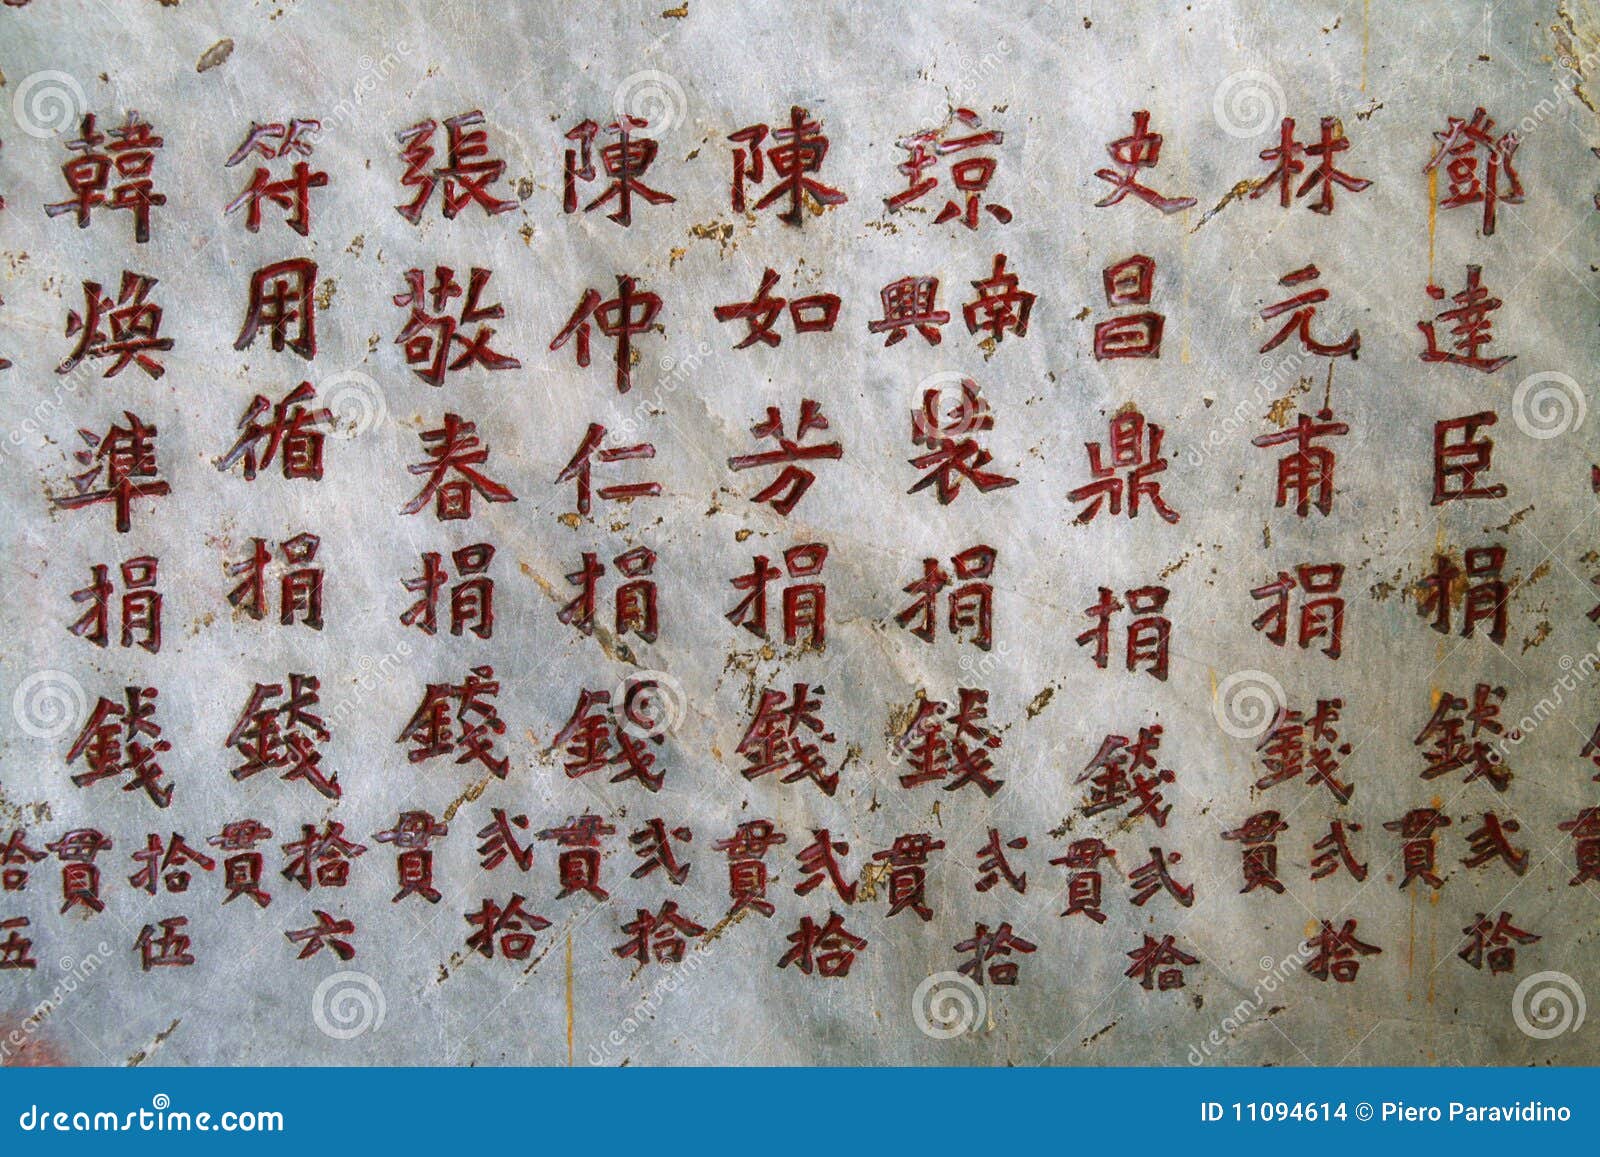 鄧達臣捐錢弍拾貫
林元甫捐錢弍拾貫
史昌鼎捐錢弍拾貫
琼南興裝捐錢弍拾貫
陳如芳捐錢弍拾貫
陳仲仁捐錢弍拾貫
張敬春捐錢弍拾貫
符用循捐錢拾六貫
韓煥準捐錢拾伍貫
dreamstime.com
ID 11094614 © Piero Paravidino